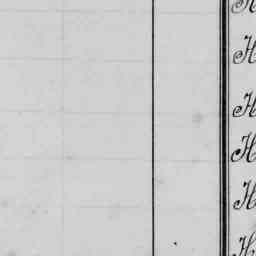 H
H
H
H
H
H